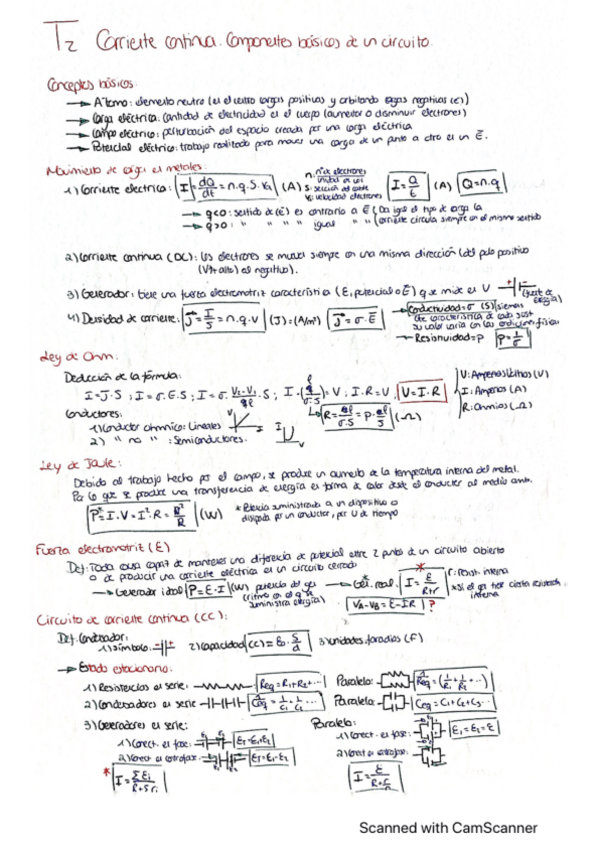 T2 Corriente continua. Componentes básicos de un circuito.
Conceptos básicos:
→ Átomo: elemento neutro (en el centro cargas positivas y orbitando cargas negativas (e-))
→ Carga eléctrica: cantidad de electricidad en el cuerpo (aumentar o disminuir electrones)
→ Campo eléctrico: perturbación del espacio creada por una carga eléctrica
→ Potencial eléctrico: trabajo realizado para mover una carga de un punto a otro en un E.
Movimiento de cargas en metales:
1) Corriente eléctrica: I = dQ/dt = n.q.S.Vd (A) n: nº de electrones S: sección del velocidad electrones I = Q/t (A) Q = n.q
→ q<0: sentido de (E) es contrario a E
→ q>0: " " " " igual " "
corriente circula siempre en el mismo sentido
2) Corriente continua (DC): los electrones se mueven siempre en una misma dirección (del polo positivo
(V+ alto) al negativo).
3) Generador: tiene una fuerza electromotriz característica (E, potencial o E) y se mide en V (fuente de energía)
4) Densidad de corriente: J = I/S = n.q.V (J)=(A/m²) J = σ.E
→ Conductividad=σ (S) siemens
característica de cada sust
su valor varía con las
→ Resistividad=ρ ρ=1/σ
Ley de Ohm:
Deducción de la fórmula:
I=J.S ; I=σ.E.S ; I=σ. V2-V1 .S ; I.(l/σ.S)=V ; I.R=V ; V=I.R
V: (V)
I: Amperios (A)
R: Ohmios (Ω)
R= l/σ.S = ρ. l/S (Ω)
Conductores:
1) Conductor ohmnico: Lineales V I
2) " no " : Semiconductores. I V
Ley de Joule:
Debido al trabajo hecho por el campo, se produce un aumento de la temperatura interna del metal.
Por lo que se produce una transferencia de energía en forma de calor desde el conductor al medio amb.
P = I.V = I².R = (W)
* Potencia suministrada a un dispositivo o
disipada por un conductor, por U de tiempo
Fuerza electromotriz (E)
Def: Toda causa capaz de mantener una diferencia de potencial entre 2 puntos de un circuito abierto
o de producir una corriente eléctrica en un circuito cerrado
→ Generador ideal P = E.I (W) potencia del gen (ritmo en el q se suministra energía) → Gen. real: I = E/R+r r: resist. interna
* Si el gen tiene cierta resistencia interna
VA-VB = E-IR ?
Circuito de corriente continua (CC):
Def. Condensador:
1) Símbolo: 2) Capacidad (C) = E0. S/d 3) Unidades: faradios (F)
→ Estado estacionario:
1) Resistencias en serie: Req = R1+R2+... Paralelo: 1/Req = (1/R1 + 1/R2 + ...)
2) Condensadores en serie 1/Ceq = 1/C1 + 1/C2 ... Paralelo: Ceq = C1+C2+C3...
3) Generadores en serie: Paralelo:
1) Conect. en fase: ET = E1+E2 1) Conect. en fase: E1=E2=E
2) Conect en contrafase: ET = E1-E2 2) Conect en contrafase:
* I = ΣEi/R+Σri I = E/R+
Scanned with CamScanner